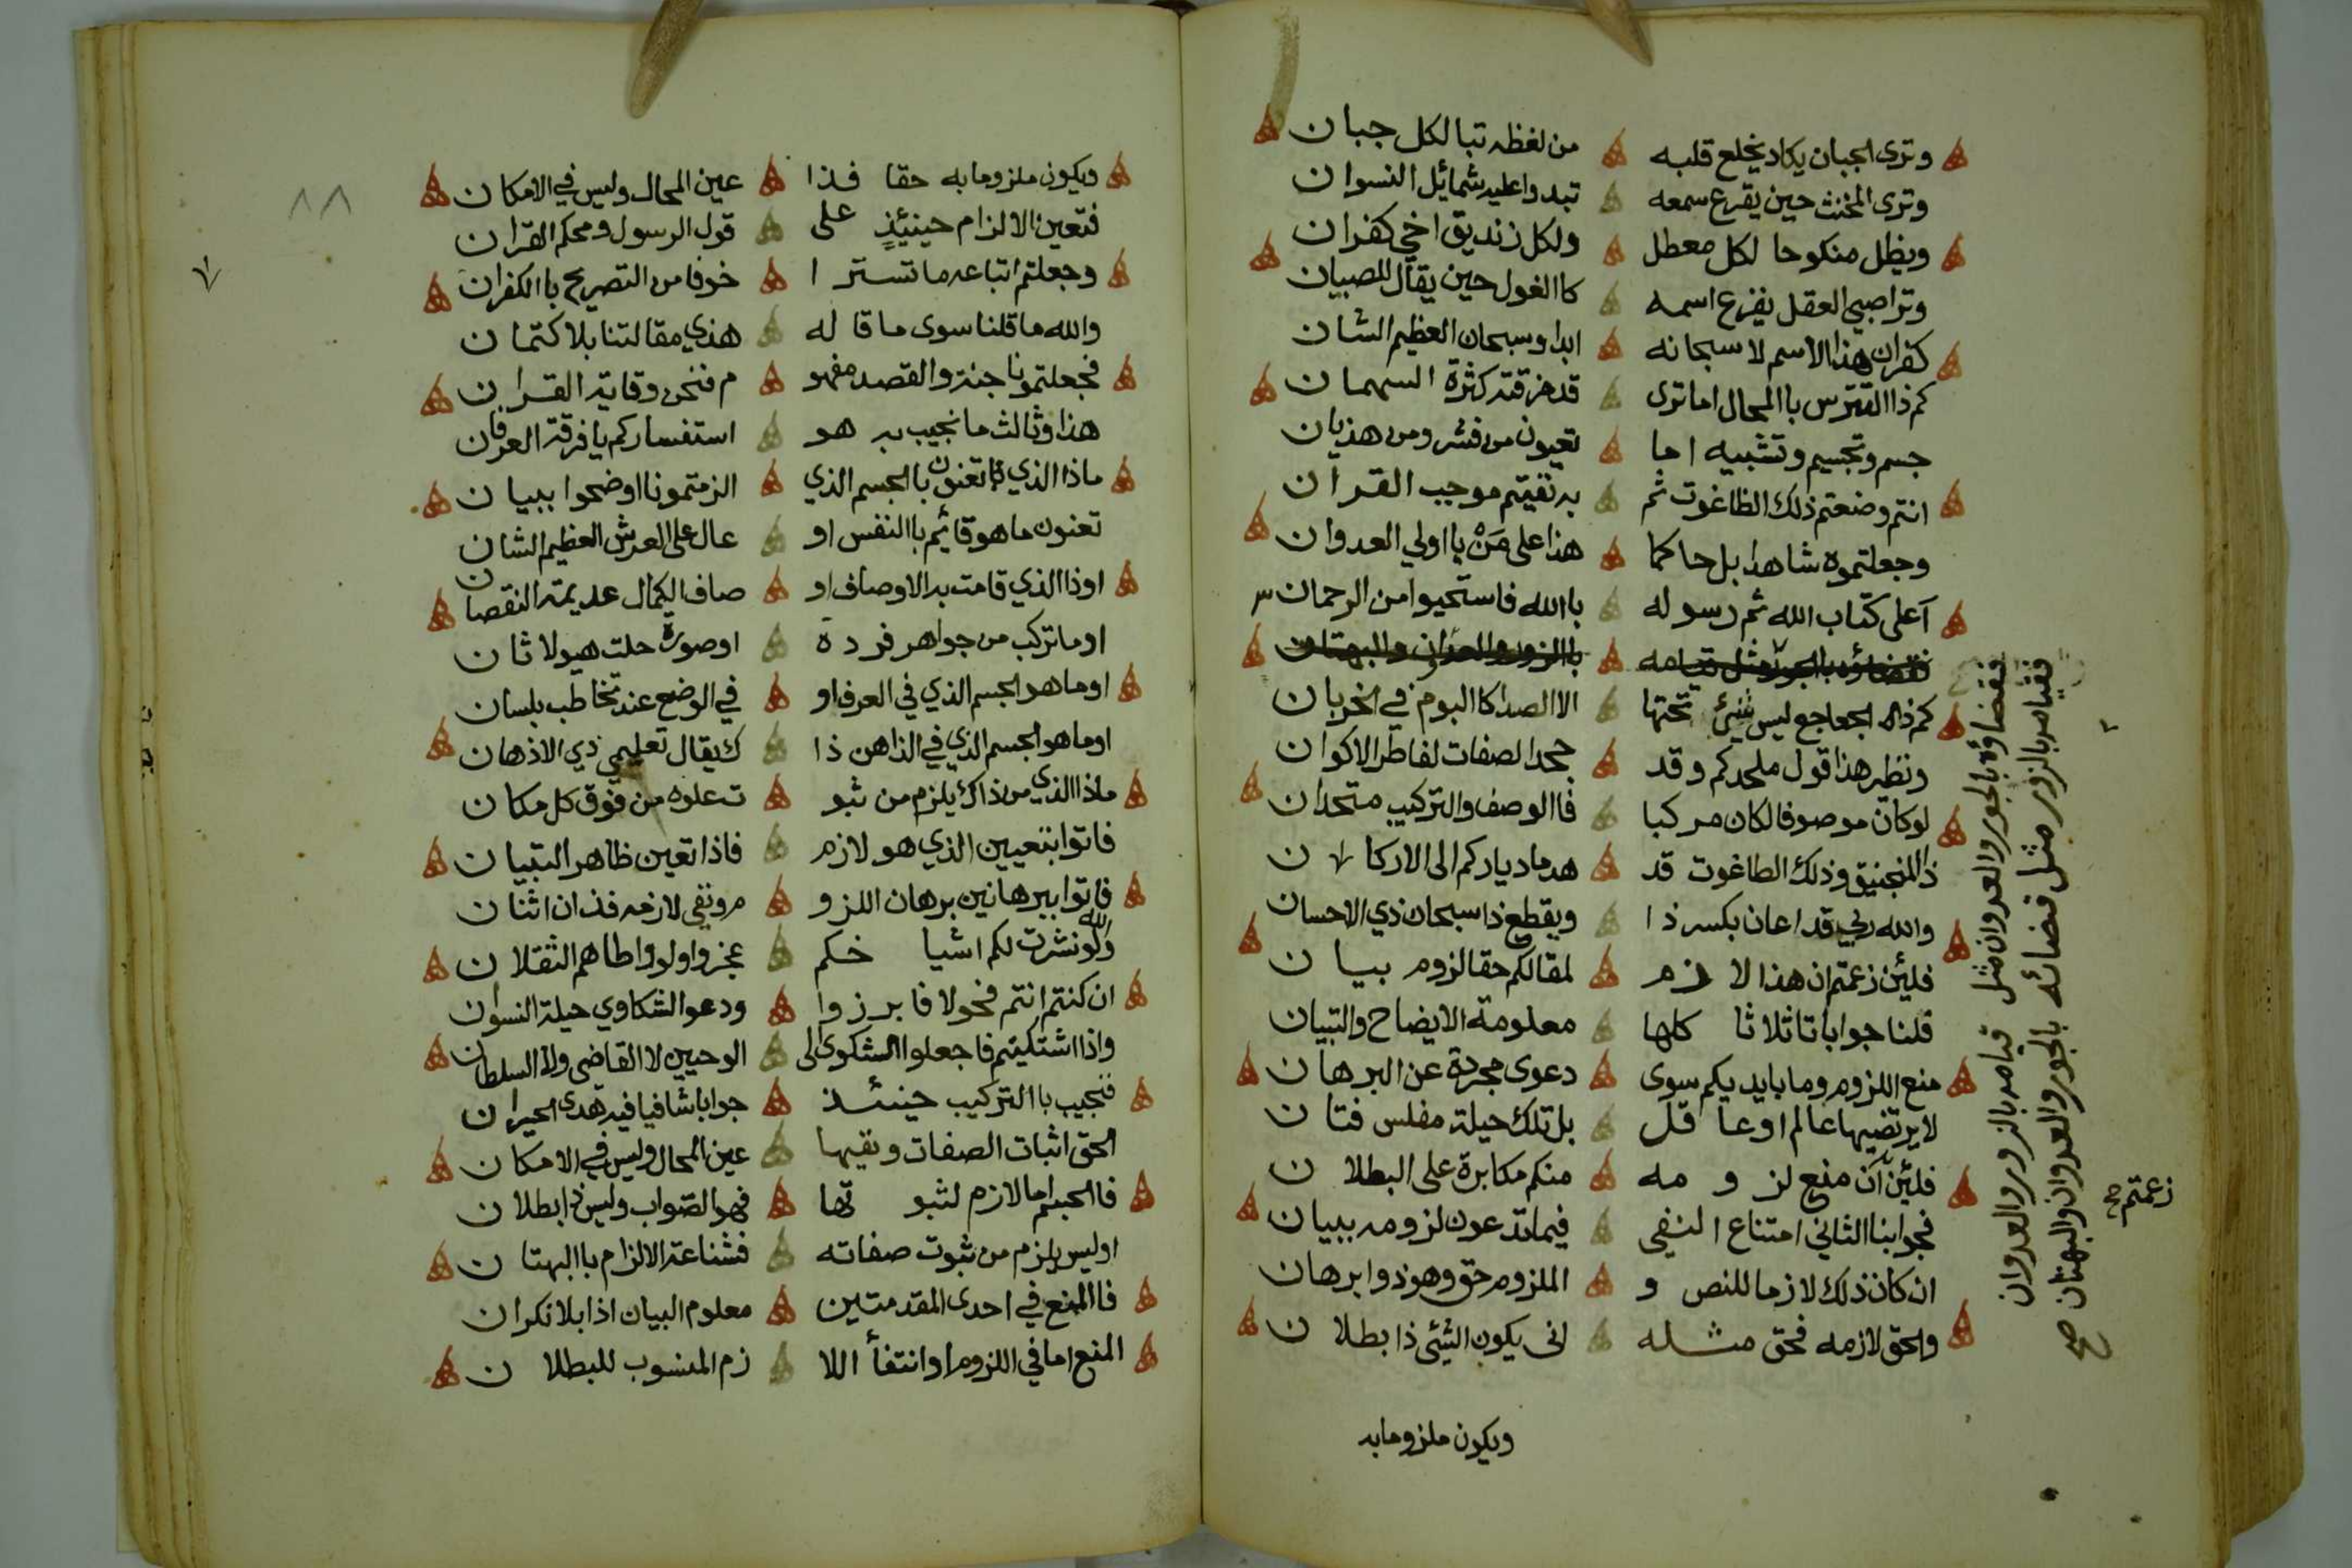 وترى الجبان يكاد يخلع قلبه من لفظه تبا لكل جبان
وترى المخنث حين يقرع سمعه تبدوا عليه شمائل النسوان
ويظل منكوحا لكل معطل ولكل زنديق اخي كفران
وترا صبي العقل يفزع اسمه كاالغول حين يقال للصبيان
كفران هذا الاسم لا سبحانه ابدا وسبحان العظيم الشان
كم ذا التترس باالمحال اما ترى قد مزقته كثرة السهمان
جسم وتجسيم وتشبيه اما تعيون من فشر ومن هذيان
انتم وضعتم ذلك الطاغوت ثم به نفيتم موجب القران
وجعلتموه شاهدا بل حاكما هذا على مَنْ يا اولي العدوان
آعلى كتاب الله ثم رسوله باالله فاستحيوا من الرحمان
فقضاؤه بالجور مثل قيامه باالزور والعدوان والبهتان
كم ذي الجعاجع ليس شيئ تحتها الا الصدا كاالبوم في الخربان
ونظير هذا قول ملحدكم وقد جحد الصفات لفاطر الاكوان
لو كان موصوفا لكان مركبا فاالوصف والتركيب متحدان
ذا المنجنيق وذلك الطاغوت قد هدما دياركم الى الاركان
والله ربي قد اعان بكسر ذا وبقطع ذا سبحان ذي الاحسان
فلئين زعمتم ان هذا لازم لمقالكم حقا لزوم بيان
قلنا جوابا تا ثلاثا كلها معلومة الايضاح والتبيان
منع اللزوم وما بايديكم سوى دعوى مجردة عن البرهان
لا يرتضيها عالم او عاقل بل تلك حيلة مفلس فتان
فلئين آن منع لزومه منكم مكابرة على البطلان
فجوابنا الثاني امتناع النفي فيما تدعون لزومه ببيان
ان كان ذلك لازما للنص و الملزوم حق وهو ذوا برهان
والحق لازمه فحق مثله انى يكون الشيئ ذا بطلان
ويكون ملزوما به
فقضاؤه بالجور والعدوان مثل قيامه بالزور والعدوان
فقيامه بالزور مثل قضائه بالجور والعدوان والبهتان صح
زعمتم صح
٨٨
ويكون ملزوما به حقا فذا عين المحال وليس في الامكان
فتعين الالزام حينيئذٍ على قول الرسول ومحكم القران
وجعلتم اتباعه ما تسترا خوفا من التصريح باالكفران
والله ما قلنا سوى ما قاله هذي مقالتنا بلا كتمان
فجعلتمونا جنة والقصد مفهو م فنحن وقاية القران
هذا وثالث ما نجيب به هو استفساركم يا فرقة العرفان
ماذا الذي تعنون باالجسم الذي الزمتمونا اوضحوا ببيان
تعنون ما هو قائيم باالنفس او عال على العرش العظيم الشان
او ذا الذي قامت به الاوصاف او صاف الكمال عديمة النقصان
او ما تركب من جواهر فردة او صورة حلت هيولا ثان
او ما هو الجسم الذي في العرف او في الوضع عند تخاطب بلسان
او ما هو الجسم الذي في الذاهن ذا ك يقال تعليمي ذي الاذهان
ماذا الذي من ذاك يلزم من ثبو ت علوه من فوق كل مكان
فاتوا بتعيين الذي هو لازم فاذا تعين ظاهر التبيان
فاتوا ببرهانين برهان اللزو م ونفي لازمه فذان اثنان
والله لو نشرت لكم اشياخكم عجزوا ولو واطاهم الثقلان
ان كنتم انتم فحولا فابرزوا ودعوا الشكاوي حيلة النسوان
واذا اشتكيتم فاجعلوا الشكوى الى الوحيين لا القاضي ولا السلطان
فنجيب باالتركيب حينئذ جوابا شافيا فيه هدى الحيران
الحق اثبات الصفات ونفيها عين المحال وليس في الامكان
فاالجسم اما لازم لثبوتها فهو الصواب وليس ذا بطلان
او ليس يلزم من ثبوت صفاته فشناعة الالزام باالبهتان
فاالمنع في احدى المقدمتين معلوم البيان اذا بلا نكران
المنع اما في اللزوم او انتفأ اللا زم المنسوب للبطلان